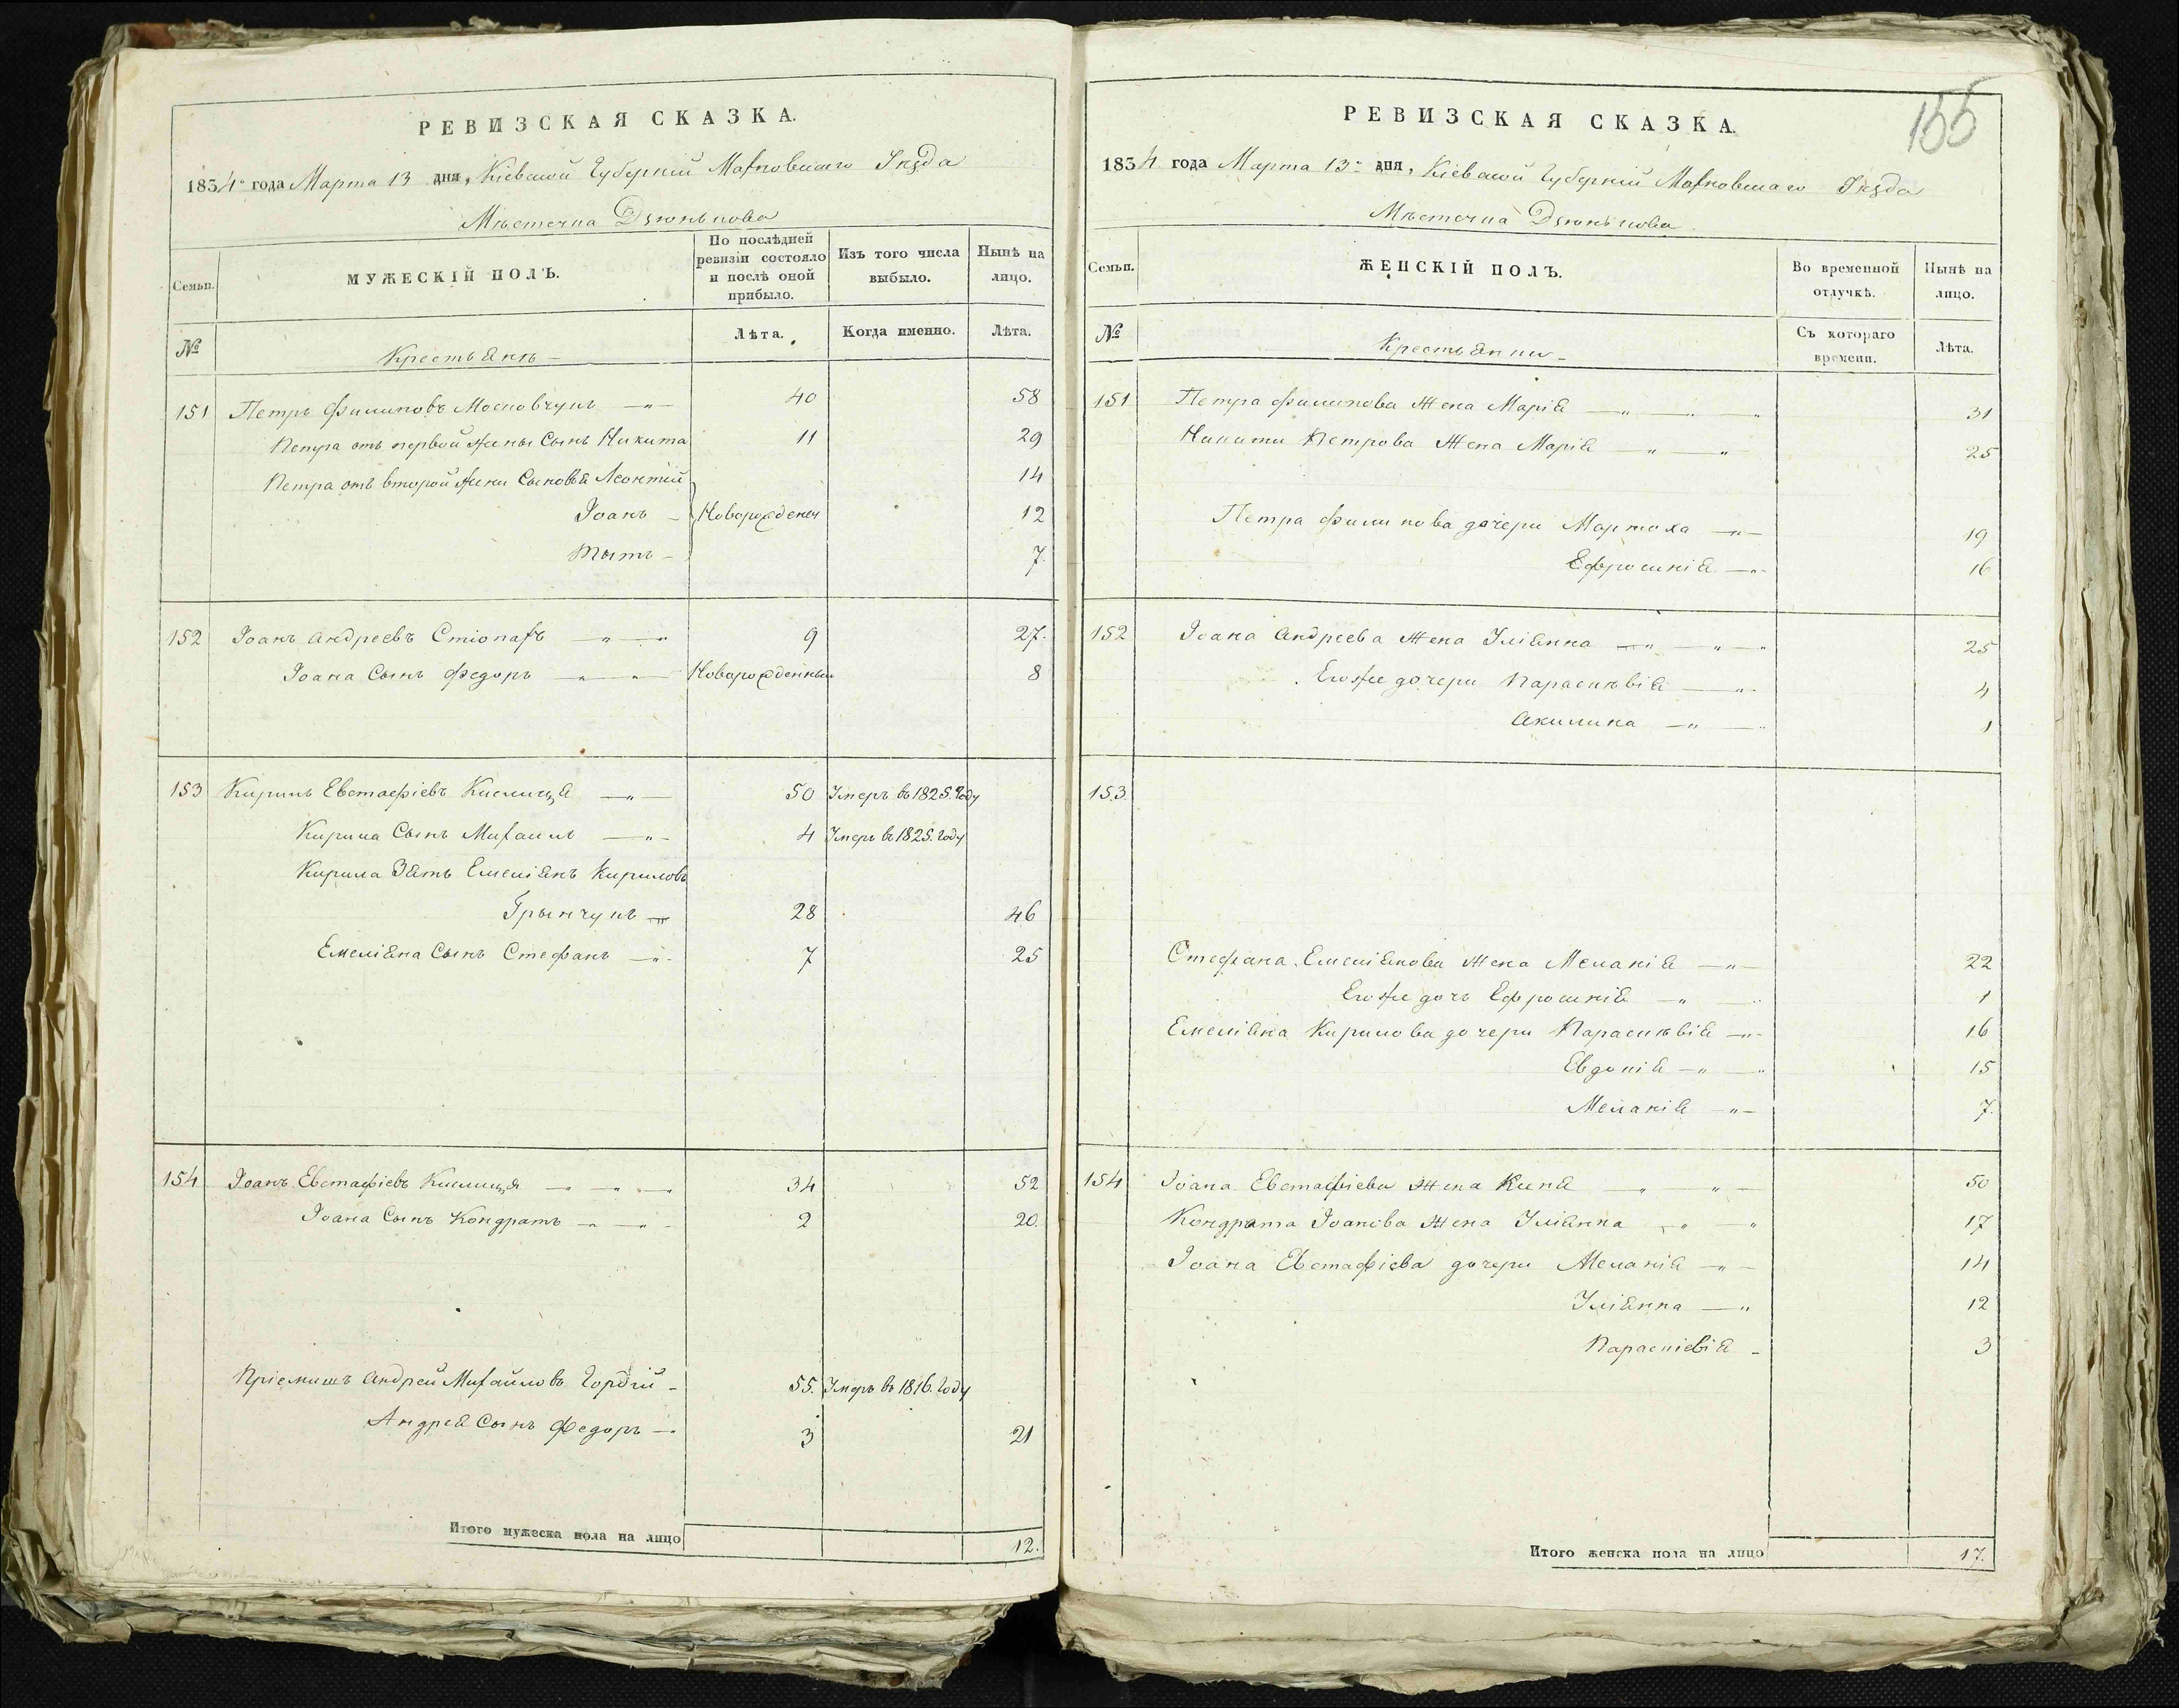 РЕВИЗСКАЯ СКАЗКА.
1834 года Марта 13 дня, Кіевской Губерніи Махновскаго Уѣзда
Мѣстечка Дзюнькова
Семьи.
МУЖЕСКІЙ ПОЛЪ.
По послѣдней ревизіи состояло и послѣ оной прибыло.
Изъ того числа выбыло.
Нынѣ на лицо.
№
Крестьянѣ
Лѣта.
Когда именно.
Лѣта.
151 Петръ Филиповъ Московчукъ 40 58
Петра отъ первой жены Сынъ Никита 11 29
Петра отъ второй жени Сыновья Леонтий 14
Іоанъ Новорожденн 12
Тытъ 7.
152 Іоанъ Андреевъ 9 27.
Іоана Сынъ Федоръ Новорожденный 8
153 Кирилъ Евстафіевъ Кислиця 50 Умеръ въ 1825. Году
Кирила Сынъ Михаилъ 4 Умеръ въ 1825. Году
Кирила Зять Емеліянъ Кириловъ
Грынчукъ 28 46
Емеліяна Сынъ Стефанъ 7 25
154 Іоанъ Евстафіевъ Кислиця 34 52
Іоана Сынъ Кондратъ 2 20.
Пріемишъ Андрей Михайловъ Гордій 55. Умеръ въ 1816. Году
Андрея Сынъ Федоръ 3 21
Итого мужеска пола на лицо 12.
155
РЕВИЗСКАЯ СКАЗКА.
1834 года Марта 13 дня, Кіевской Губерніи Махновскаго Уѣзда
Мѣстечка Дзюнькова
Семьи.
ЖЕНСКІЙ ПОЛЪ.
Во временной отлучкѣ.
Нынѣ на лицо.
№
Крестьянки
Съ котораго времени.
Лѣта.
151 Петра Филипова Жена Марія 31
Никити Петрова Жена Марія 25
Петра Филипова дочери Мартоха 19
Ефросинія 16
152 Іоана Андреева Жена Уліянна 25
Егоже дочери Параскѣвія 4
Акилина 1
153.
Стефана Емеліянова Жена Меланія 22
Егоже дочъ Ефросинія 1
Емеліяна Кирилова дочери Параскѣвія 16
Евдокія 15
Меланія 7.
154 Іоана Евстафіева Жена Ксенія 50
Кондрата Іоанова Жена Уліянна 17
Іоана Евстафіева дочери Меланія 14
Уліянна 12
Параскіевія 3
Итого женска пола на лицо 17.